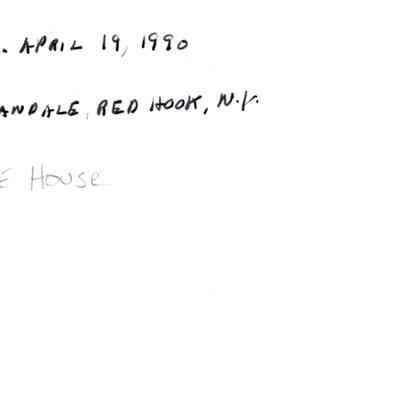 . APRIL 19, 1990
ANDALE, RED HOOK, N.Y.
E House